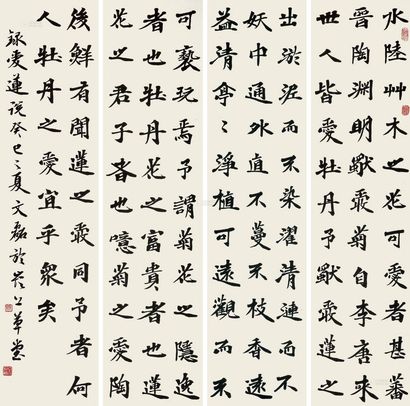 水陸艸木之花可愛者甚蕃
晉陶淵明獨愛菊自李唐來
世人皆愛牡丹予獨愛蓮之
出淤泥而不染濯清漣而不
妖中通外直不蔓不枝香遠
益清亭〻淨植可遠觀而不
可褻玩焉予謂菊花之隱逸
者也牡丹花之富貴者也蓮
花之君子者也噫菊之愛陶
後鮮有聞蓮之愛同予者何
人牡丹之愛宜乎眾矣
録愛蓮说癸巳之夏文磊於上草堂